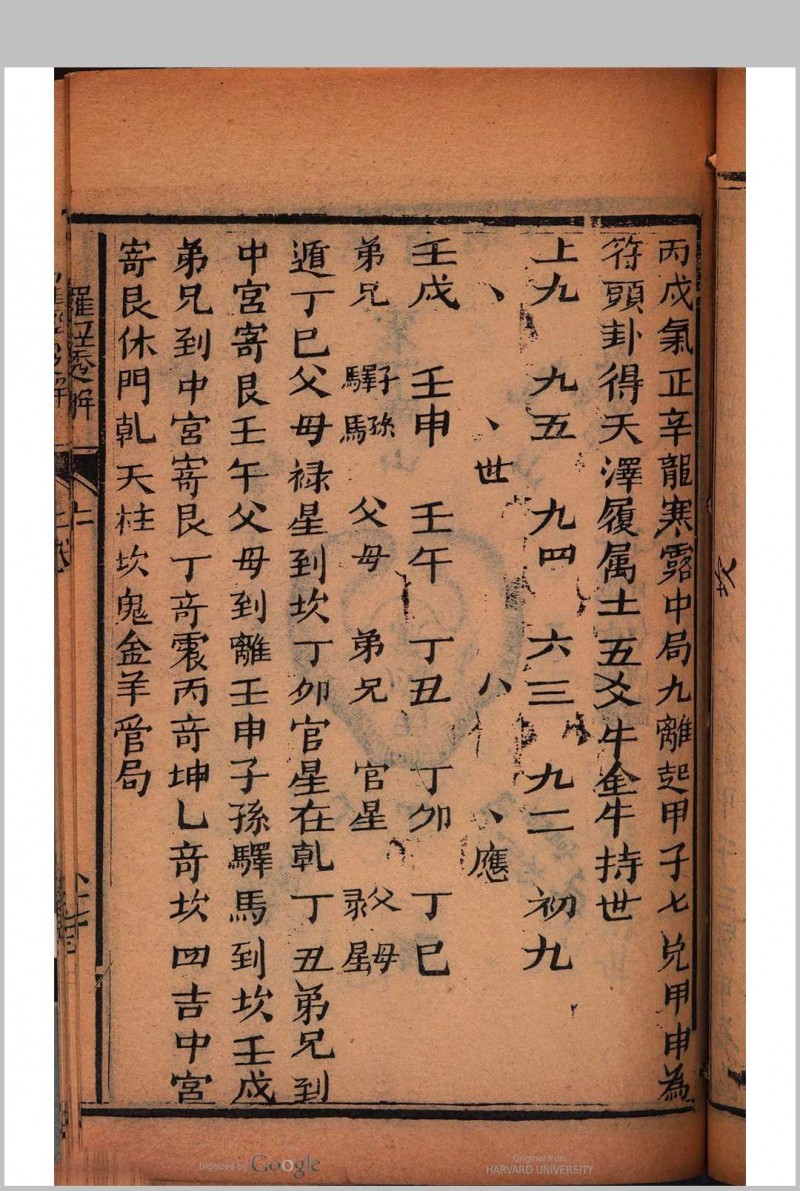 丙戌氣正辛龍寒露中局九離起甲子七兌甲申為
符頭卦得天澤履属土五爻牛金牛持世
上九 九五 九四 六三 九二 初九
丶 丶世 八 丶應
壬戌 壬申 壬午 丁丑 丁卯 丁巳
弟兄 子孫驛馬 父母 弟兄 官星 父母祿星
遁丁巳父母禄星到坎丁卯官星在乹丁丑弟兄到
中宮寄艮壬午父母到離壬申子孫驛馬到坎壬戌
弟兄到中宮寄艮丁竒震丙竒坤乚竒坎四吉中宮
寄艮休門乹天柱坎鬼金羊管局
羅經透解
Digitized by Google
Original from
HARVARD UNIVERSITY